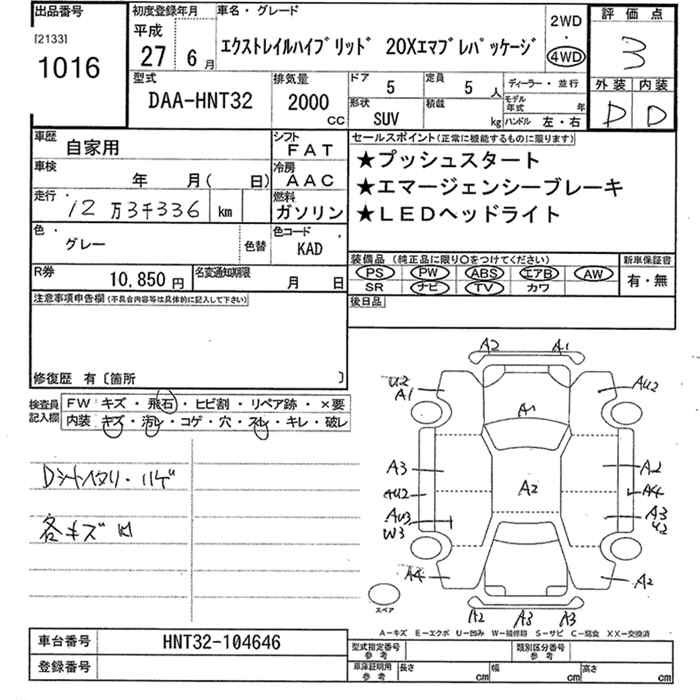 出品番号
[2133]
1016
初度登録年月
平成
27 6月
車名・グレード
エクストレイルハイブリッド 20Xエマブレパッケージ
2WD
・
4WD
評価点
3
外装 内装
D D
型式
DAA-HNT32
排気量
2000
CC
ドア
5
定員
5人
形状
SUV
積載
kg
ディーラー・並行
モデル年式 年
ハンドル 左・右
車歴
自家用
シフト
FAT
車検
年 月( 日)
冷房
AAC
走行
12万3千336 km
燃料
ガソリン
色
グレー
色替
色コード
KAD
R券
10,850円
名変通知期限
月 日
セールスポイント(正常に機能するものに限ります)
★プッシュスタート
★エマージェンシーブレーキ
★LEDヘッドライト
装備品 (純正品に限り○をつけてください)
PS PW ABS エアB AW
SR ナビ TV カワ
新車保証書
有・無
後日品
注意事項申告欄(不具合内容等は具体的に記入して下さい)
修復歴 有〔箇所 〕
検査員記入欄
FW キズ・飛石・ヒビ割・リペア跡・×要
内装 キズ・汚レ・コゲ・穴・スレ・キレ・破レ
Dシートヘタリ・ハゲ
各キズ凹
A2 A1
U2 A1
AU2
A1
A3 A2
AU2 A2 A4
AU3 A3
W3 U2
A4 A2
A2 A3 A3
スペア
A-キズ E-エクボ U-凹み W-補修跡 S-サビ C-腐食 XX-交換済
車台番号
HNT32-104646
登録番号
型式指定番号
参考
類別区分番号
参考
車庫証明用
参考
長さ cm 幅 cm 高さ cm